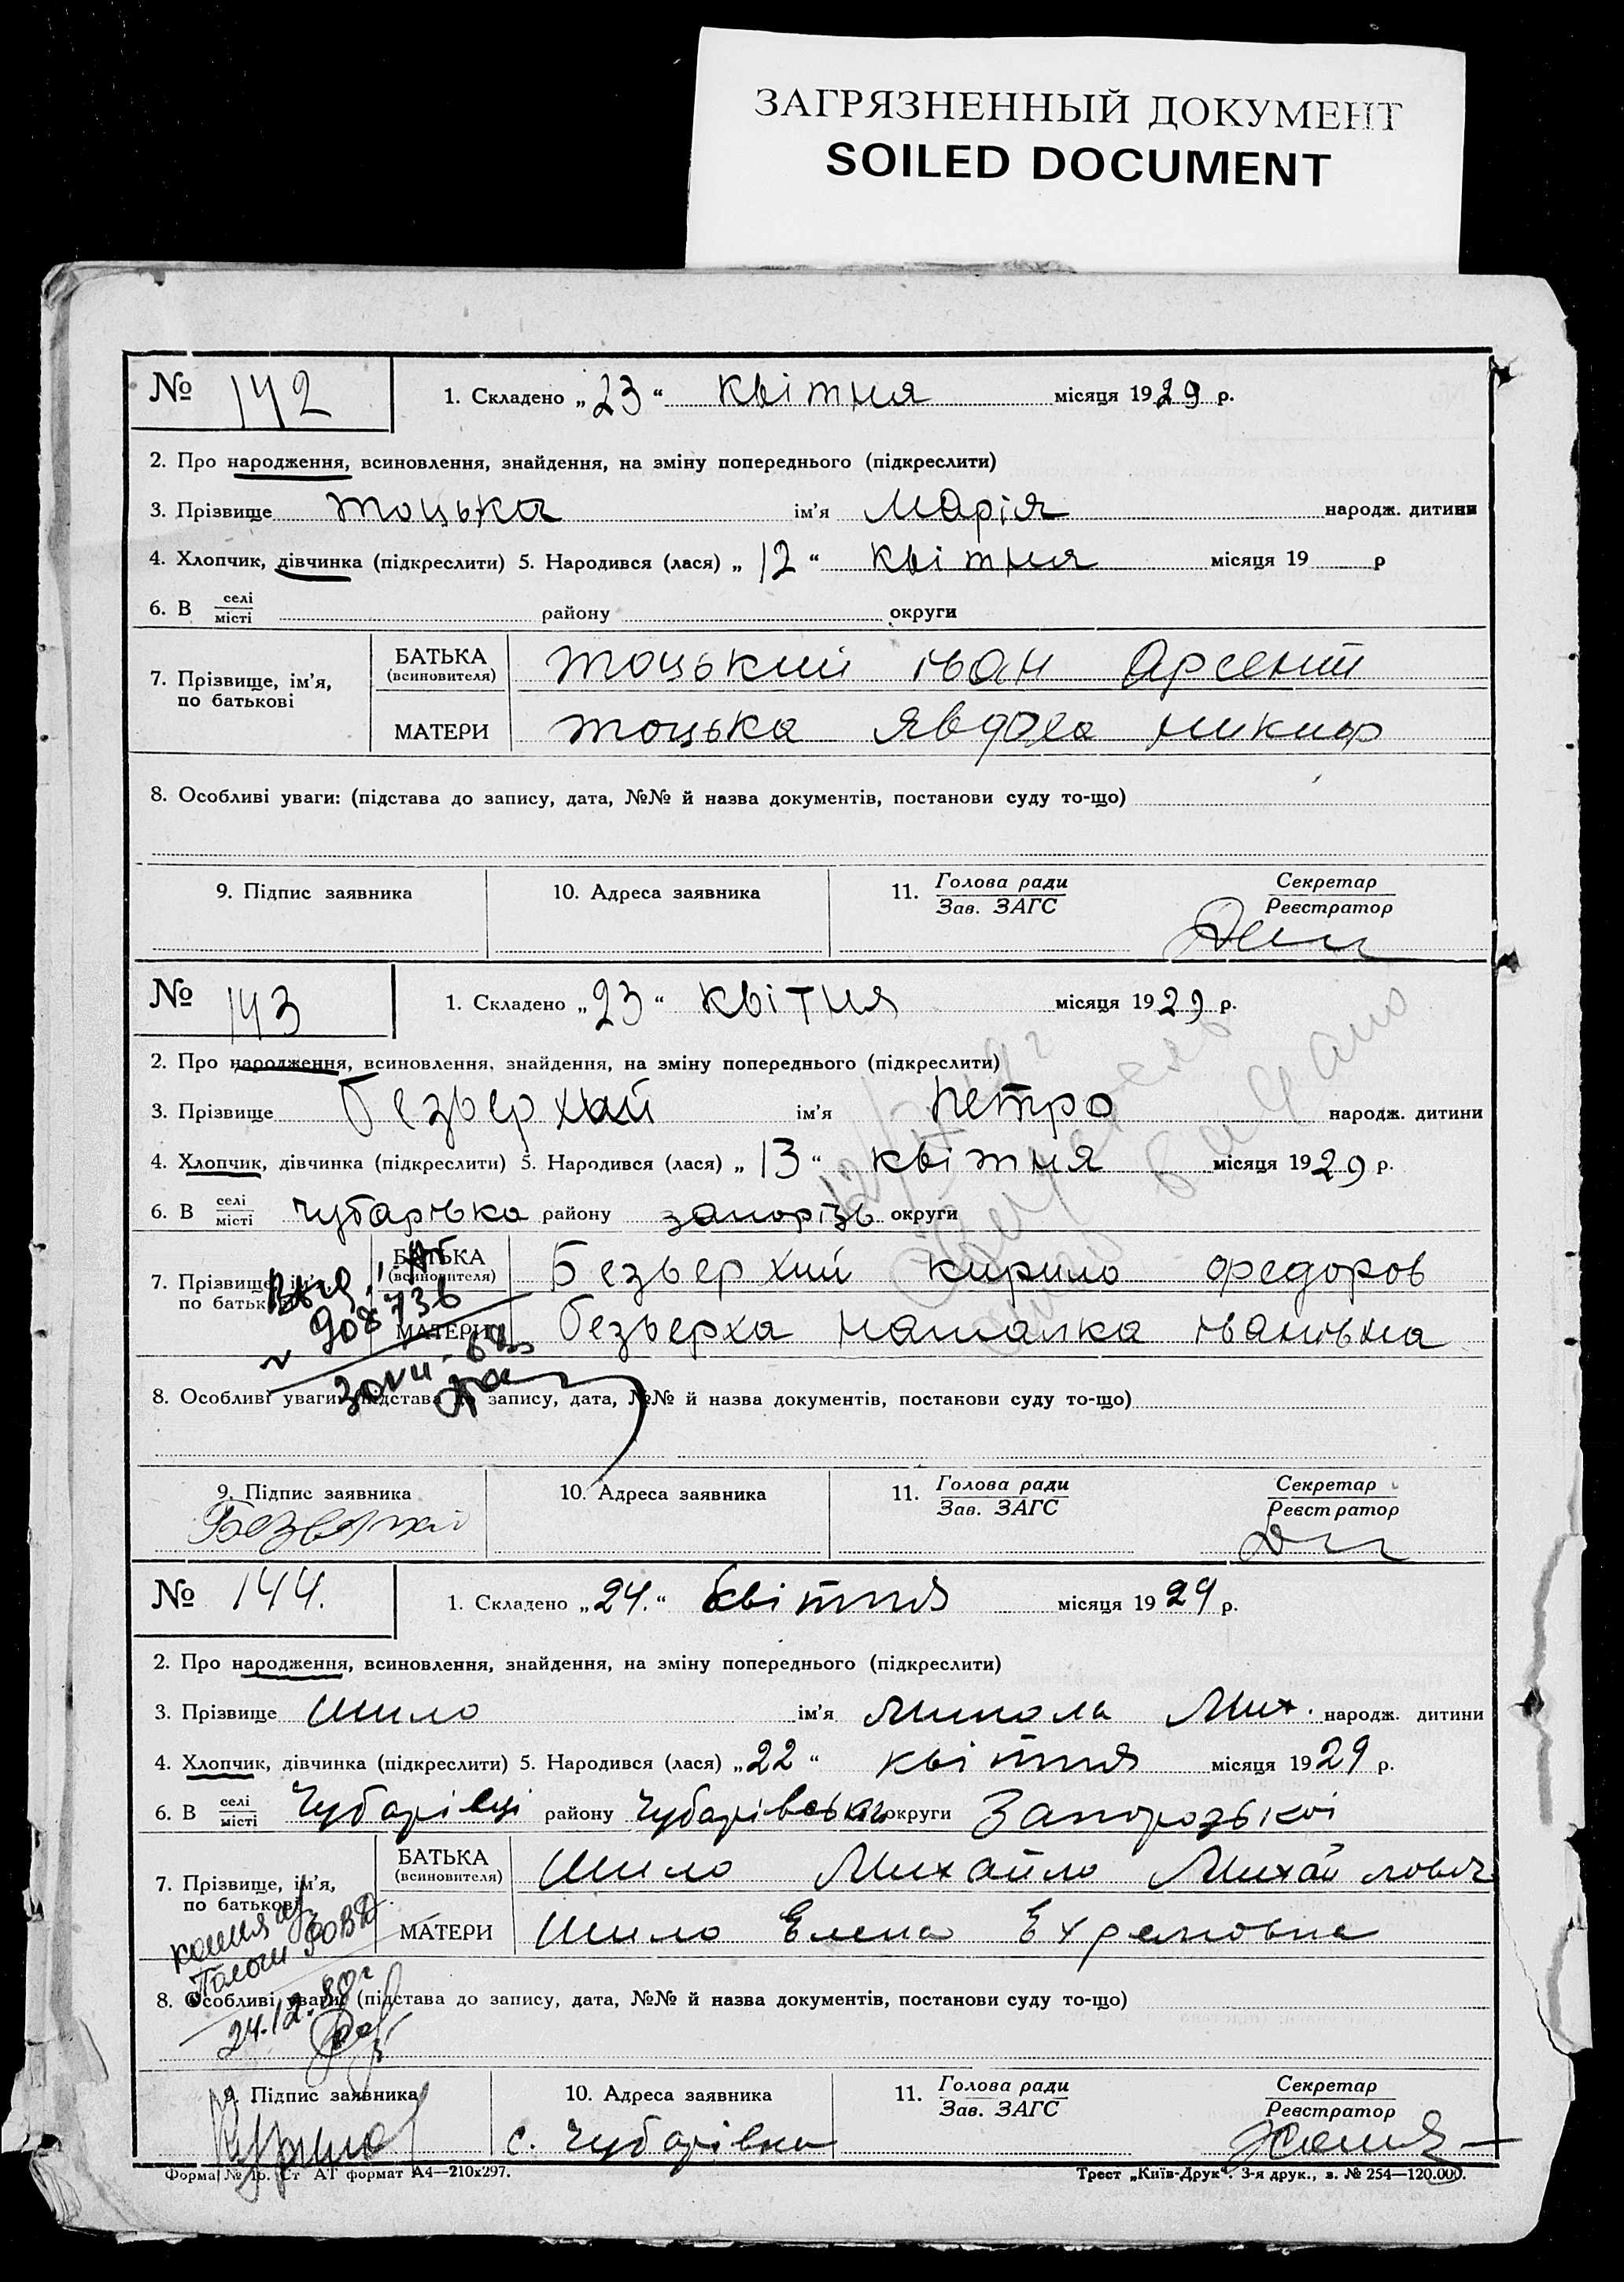 ЗАГРЯЗНЕННЫЙ ДОКУМЕНТ
SOILED DOCUMENT
№ 142 1. Складено „23“ квітня місяця 1929 р.
2. Про народження, всиновлення, знайдення, на зміну попереднього (підкреслити)
3. Прізвище Тоцька ім'я Марія народж. дитини
4. Хлопчик, дівчинка (підкреслити) 5. Народився (лася) „12“ квітня місяця 19 р
6. В селі/місті району округи
7. Прізвище, ім'я, по батькові
БАТЬКА (всиновителя) Тоцький Іван Арсент
МАТЕРИ Тоцька Явдоха Никиф
8. Особливі уваги: (підстава до запису, дата, №№ й назва документів, постанови суду то-що)
9. Підпис заявника 10. Адреса заявника 11. Голова ради/Зав. ЗАГС Секретар/Реєстратор
№ 143 1. Складено „23“ квітня місяця 1929 р.
2. Про народження, всиновлення, знайдення, на зміну попереднього (підкреслити)
3. Прізвище Безверхий ім'я Петро народж. дитини
4. Хлопчик, дівчинка (підкреслити) 5. Народився (лася) „13“ квітня місяця 1929 р.
6. В селі/місті Чубарівка району запорізь округи
7. Прізвище, ім'я, по батькові
БАТЬКА (всиновителя) Безверхий Кирило Федоров
МАТЕРИ Безверха Наталка Іванівна
8. Особливі уваги: (підстава до запису, дата, №№ й назва документів, постанови суду то-що)
9. Підпис заявника 10. Адреса заявника 11. Голова ради/Зав. ЗАГС Секретар/Реєстратор
Безверхий
№ 144. 1. Складено „24.“ квітня місяця 1929 р.
2. Про народження, всиновлення, знайдення, на зміну попереднього (підкреслити)
3. Прізвище Шило ім'я Микола Мих. народж. дитини
4. Хлопчик, дівчинка (підкреслити) 5. Народився (лася) „22“ квітня місяця 1929 р.
6. В селі/місті Чубарівці району Чубарівськ округи Запорозької
7. Прізвище, ім'я, по батькові
БАТЬКА (всиновителя) Шило Михайло Михайлович
МАТЕРИ Шило Елена Ехремовна
копия
24.12.80г
8. Особливі уваги: (підстава до запису, дата, №№ й назва документів, постанови суду то-що)
9. Підпис заявника 10. Адреса заявника 11. Голова ради/Зав. ЗАГС Секретар/Реєстратор
с. Чубарівка
Форма № 1р. Ст АТ формат А4—210х297. Трест „Київ-Друк“. 3-я друк., з. № 254—120.000.